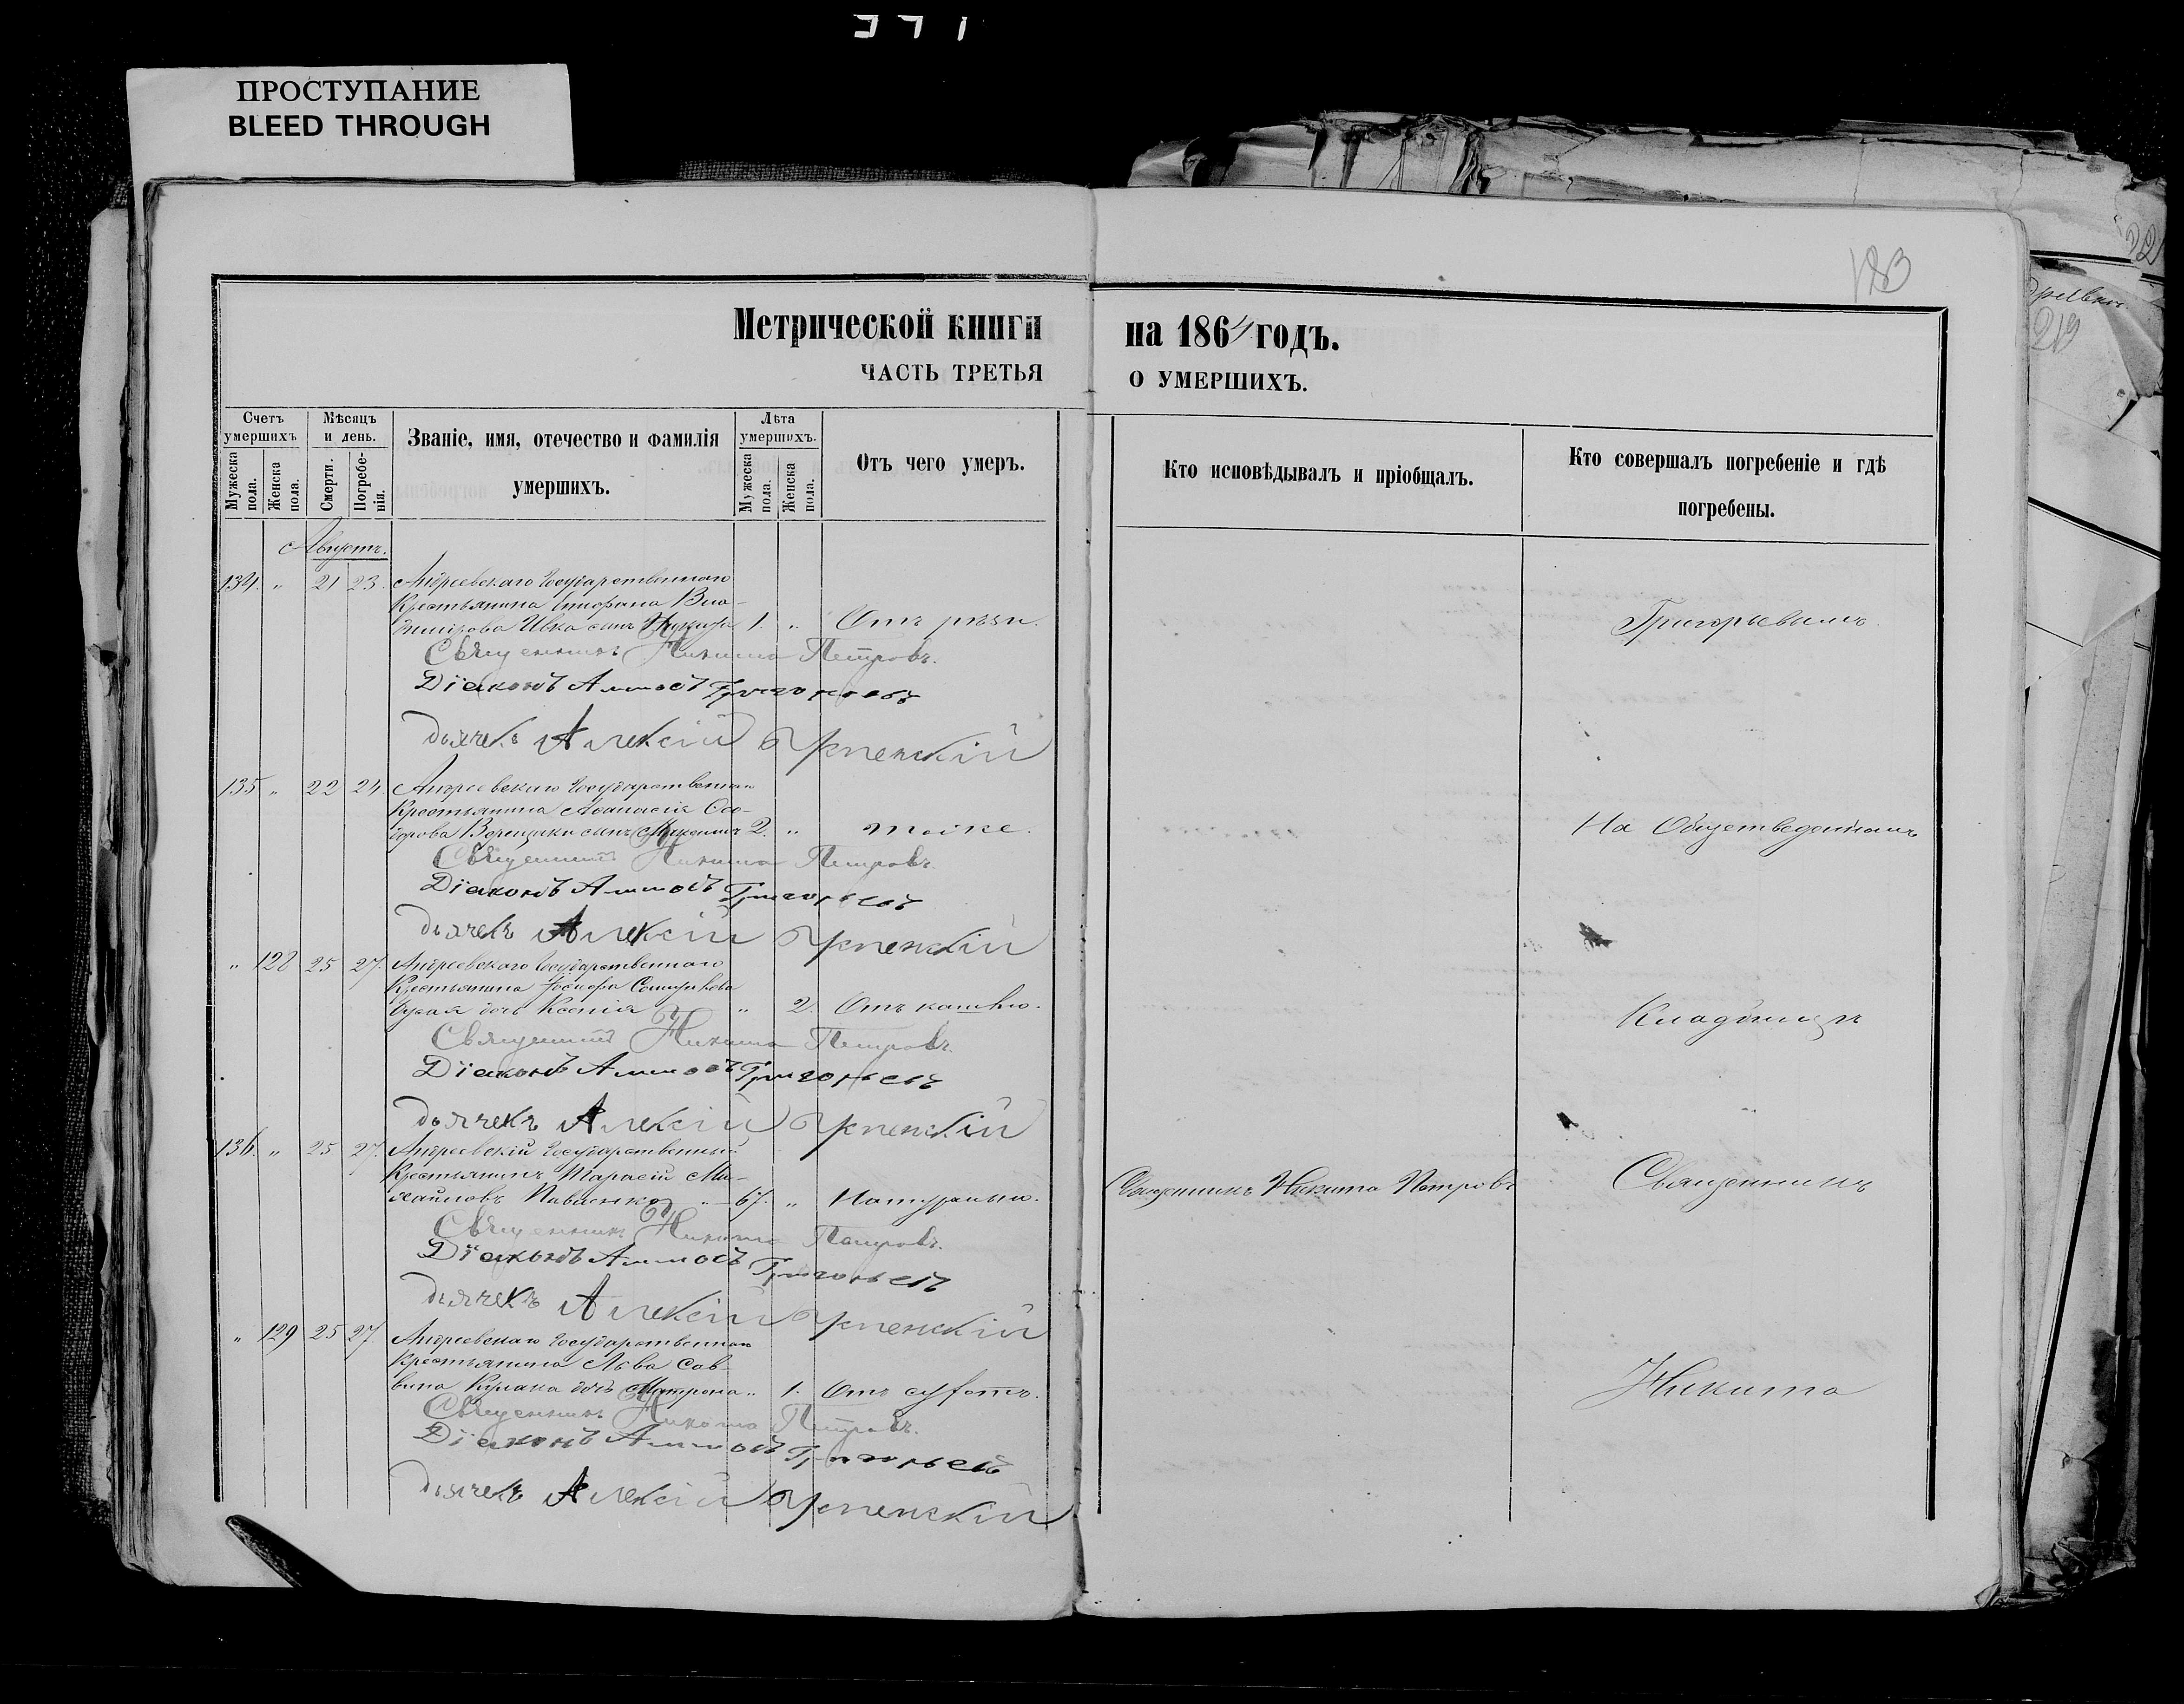 ПРОСТУПАНИЕ
BLEED THROUGH
183
Метрической книги на 1864 годъ.
ЧАСТЬ ТРЕТЬЯ О УМЕРШИХЪ.
Счетъ умершихъ
Мужеска пола.
Женска пола.
Мѣсяцъ и день.
Смерти.
Погребенія.
Званіе, имя, отечество и фамилія умершихъ.
Лѣта умершихъ.
Мужеска пола.
Женска пола.
Отъ чего умеръ.
Кто исповѣдывалъ и пріобщалъ.
Кто совершалъ погребеніе и гдѣ погребены.
Августъ.
134. " 21 23. Андреевскаго Государственнаго
Крестьянина Епифана Вла-
димірова сынъ 1. " Отъ рѣзи. Григорьевымъ.
Священникъ Никита Петровъ.
Діаконъ Аммосъ Григорьевъ
дьячекъ Алексій Успенскій
135 " 22 24. Андреевскаго Государственнаго
Крестьянина Аѳанасія Ѳео-
дорова сынъ 2. " тоже. На Общественномъ
Священникъ Никита Петровъ.
Діаконъ Аммосъ Григорьевъ
дьячекъ Алексій Успенскій
" 128 25 27. Андреевскаго Государственнаго
Крестьянина Іосифа
дочь Ксенія " 2. Отъ кашлю. Кладбищѣ
Священникъ Никита Петровъ.
Діаконъ Аммосъ Григорьевъ
дьячекъ Алексій Успенскій
136. " 25 27. Андреевскій Государственный
Крестьянинъ Тарасій Ми-
хайловъ Павленко " 67. " Натурально. Священникъ Никита Петровъ Священникъ
Священникъ Никита Петровъ.
Діаконъ Аммосъ Григорьевъ
дьячекъ Алексій Успенскій
" 129 25 27. Андреевскаго Государственнаго
Крестьянина Льва Сав-
вина Кулака дочь Матрона " 1. Отъ сухотъ. Никита
Священникъ Никита Петровъ.
Діаконъ Аммосъ Григорьевъ
дьячекъ Алексій Успенскій